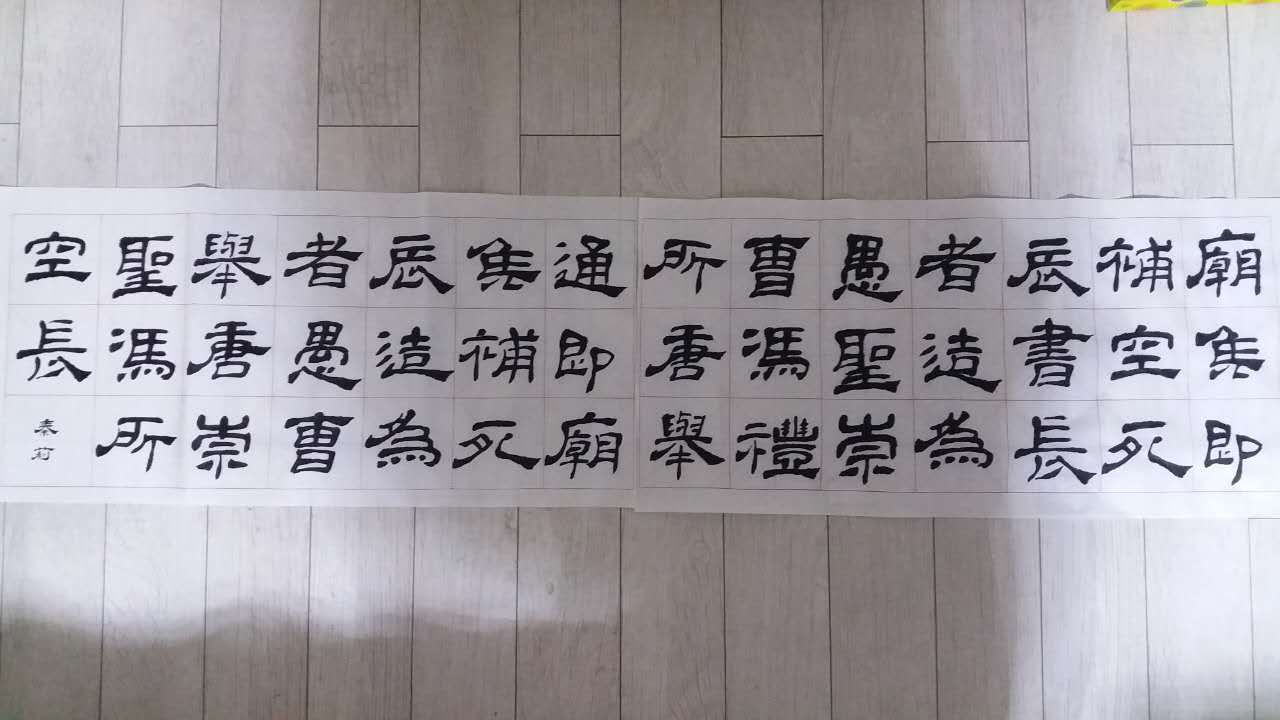 廟即
補空死
辰書長
者造為
愚聖崇
曹馮禮
所唐舉
通即廟
補死
辰造為
者愚曹
舉唐崇
聖馮所
空長
秦